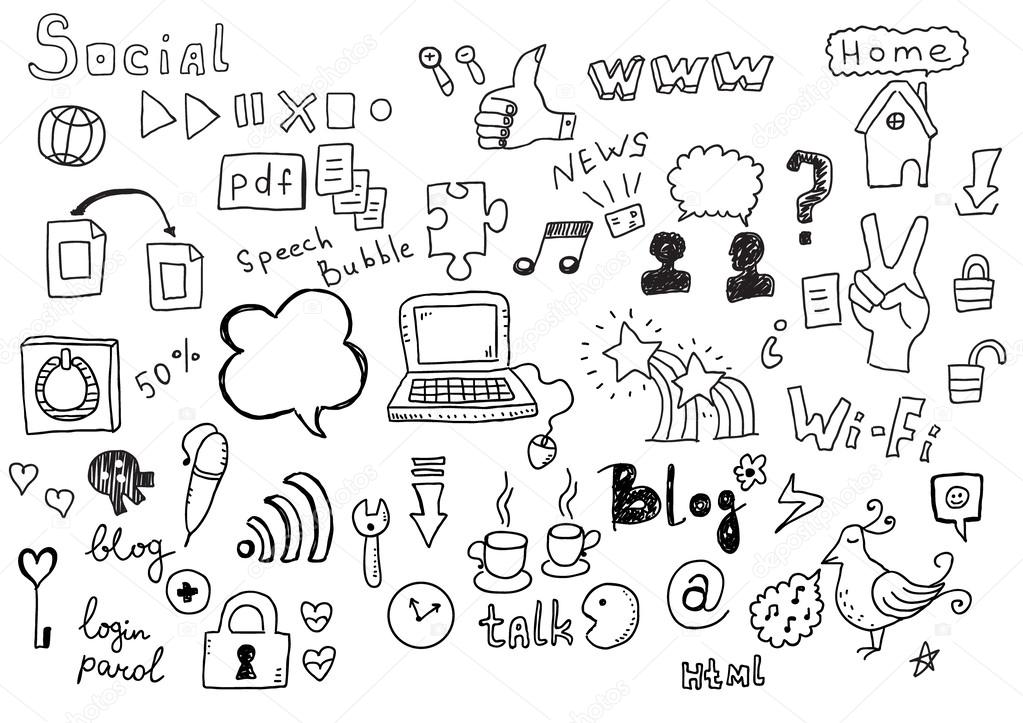 Social
www
Home
pdf
NEWS
?
Speech
Bubble
i
50%
Wi-Fi
Blog
blog
@
login
parol
talk
Html